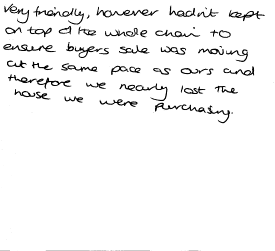 very friendly, however hadn't kept
on top of the whole chain to
ensure buyers sale was moving
at the same pace as ours and
therefore we nearly lost the
house we were purchasing.